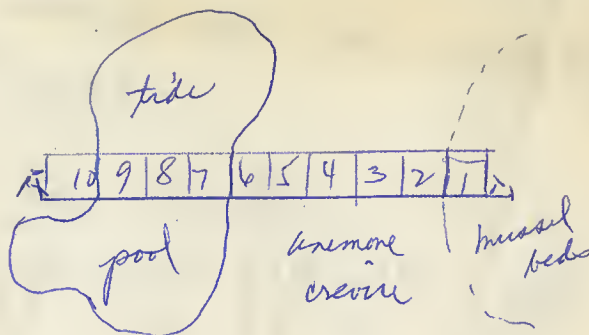 tide
10 9 8 7 6 5 4 3 2 1
pool
anemone
crevice
mussel
beds